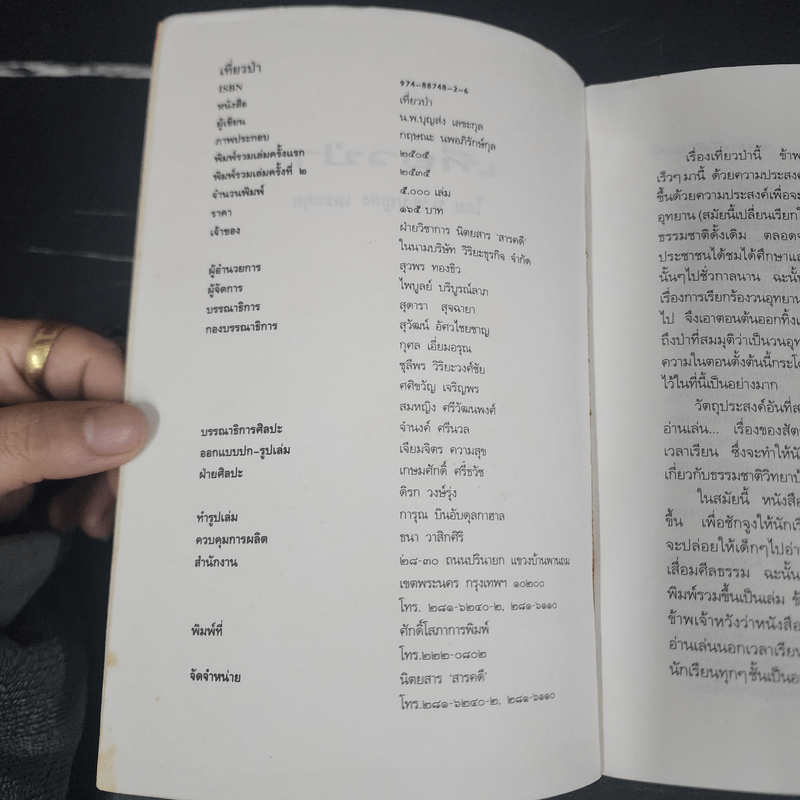 เที่ยวป่า
ISBN 974-88748-2-6
หนังสือ เที่ยวป่า
ผู้เขียน น.พ.บุญส่ง เลขะกุล
ภาพประกอบ กฤษณะ นพอภิรักษ์กุล
พิมพ์รวมเล่มครั้งแรก ๒๕๐๕
พิมพ์รวมเล่มครั้งที่ ๒ ๒๕๓๕
จำนวนพิมพ์ ๕,๐๐๐ เล่ม
ราคา ๑๖๕ บาท
เจ้าของ ฝ่ายวิชาการ นิตยสาร 'สารคดี'
ในนามบริษัท วิริยะธุรกิจ จำกัด
ผู้อำนวยการ สุวพร ทองธิว
ผู้จัดการ ไพบูลย์ บริบูรณ์ลาภ
บรรณาธิการ สุดารา สุจฉายา
กองบรรณาธิการ สุวัฒน์ อัศวไชยชาญ
กุศล เอี่ยมอรุณ
ชุลีพร วิริยะวงศ์ชัย
ศศิขวัญ เจริญพร
สมหญิง ศรีวัฒนพงศ์
บรรณาธิการศิลปะ จำนงค์ ศรีนวล
ออกแบบปก-รูปเล่ม เจียมจิตร ความสุข
ฝ่ายศิลปะ เกษมศักดิ์ ศรีธวัช
ดิรก วงษ์รุ่ง
ทำรูปเล่ม การุณ บินอับดุลกาฮาล
ควบคุมการผลิต ธนา วาสิกศิริ
สำนักงาน ๒๘-๓๐ ถนนปรินายก แขวงบ้านพานถม
เขตพระนคร กรุงเทพฯ ๑๐๒๐๐
โทร. ๒๘๑-๖๒๔๐-๒, ๒๘๑-๖๑๑๐
พิมพ์ที่ ศักดิ์โสภาการพิมพ์
โทร.๒๒๒-๐๘๐๒
จัดจำหน่าย นิตยสาร 'สารคดี'
โทร.๒๘๑-๖๒๔๐-๒, ๒๘๑-๖๑๑๐
เรื่องเที่ยวป่านี้
เร็วๆ มานี้ ด้วยความประสงค์
ขึ้นด้วยความประสงค์เพื่อจะ
อุทยาน (สมัยนี้เปลี่ยนเรียก
ธรรมชาติดั้งเดิม ตลอด
ประชาชนได้ชมได้ศึกษา
นั้นๆ ไปชั่วกาลนาน
เรื่องการเรียกร้องวนอุทยาน
ไป จึงเอาตอนต้นออกทิ้ง
ถึงป่าที่สมมุติว่าเป็นวน
ความในตอนตั้งต้นนี้
ไว้ในที่นี้เป็นอย่างมาก
วัตถุประสงค์อันที่
อ่านเล่น... เรื่องของ
เวลาเรียน ซึ่งจะทำให้
เกี่ยวกับธรรมชาติวิทยา
ในสมัยนี้ หนังสือ
ขึ้น เพื่อชักจูงให้
จะปล่อยให้เด็กๆ ไป
เสื่อมศีลธรรม ฉะนั้น
พิมพ์รวมขึ้นเป็นเล่ม
ข้าพเจ้าหวังว่าหนังสือ
อ่านเล่นนอกเวลาเรียน
นักเรียนทุกๆ ชั้นเป็น